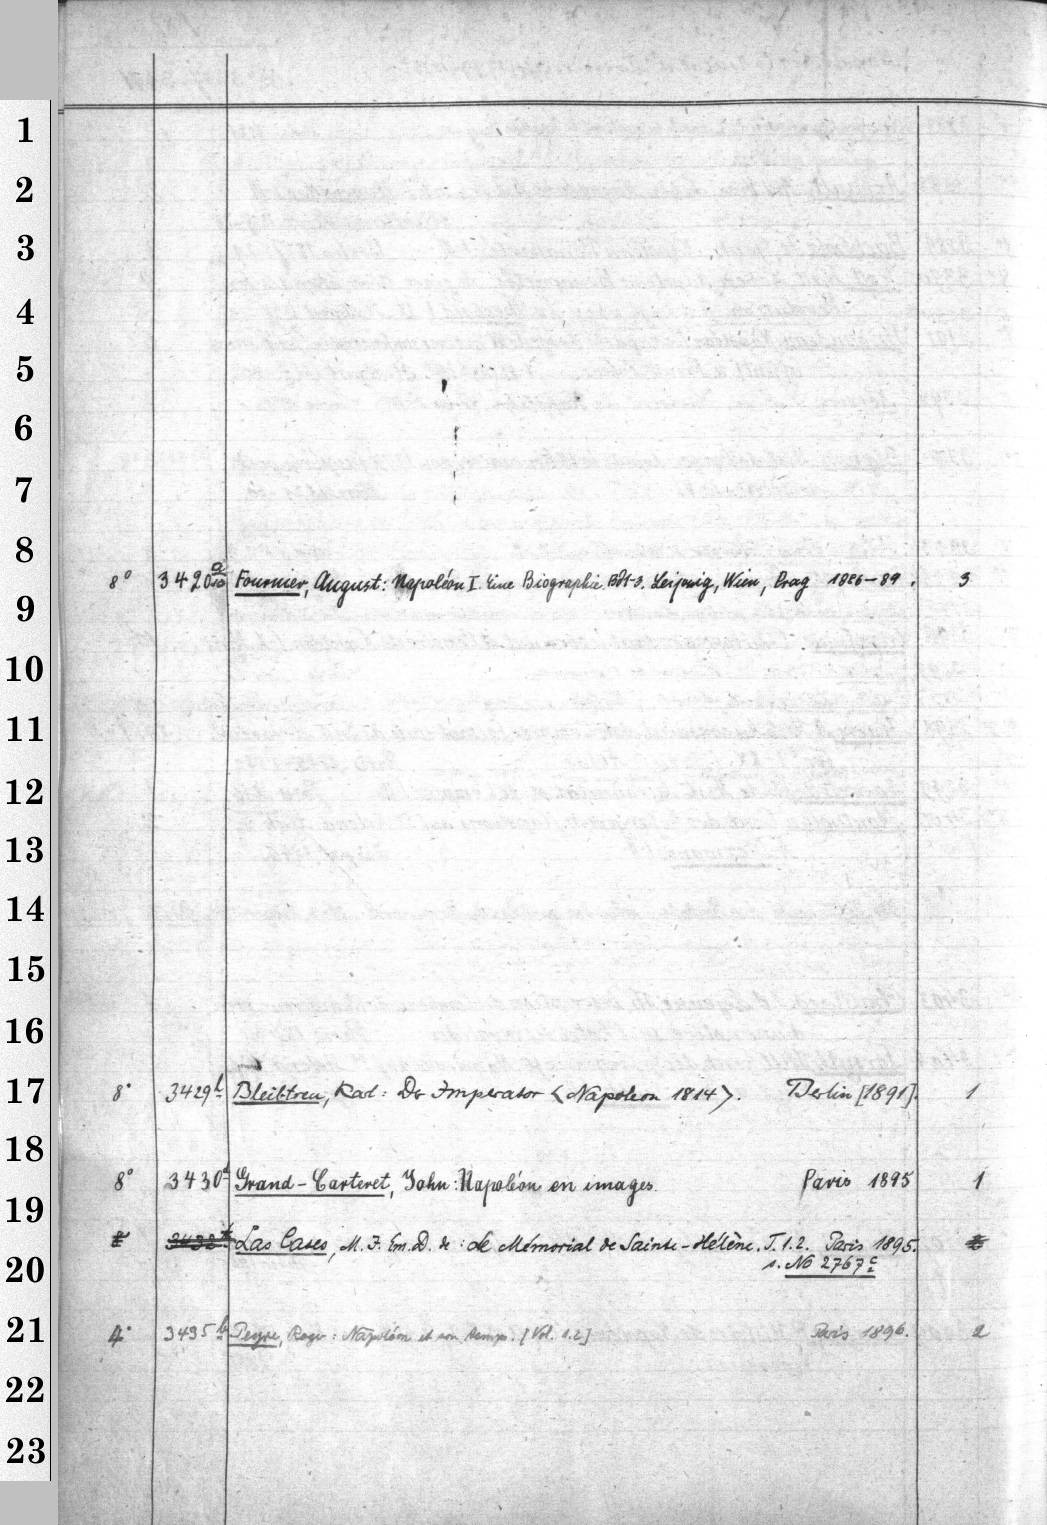 1
2
3
4
5
6
7
8
8° 3420 a/10 Fournier, August: Napoléon I. Eine Biographie. Bd 1-3. Leipzig, Wien, Prag 1886-89. 3
9
10
11
12
13
14
15
16
17 8° 3429 b Bleibtreu, Karl: Der Imperator <Napoleon 1814>. Berlin [1891]. 1
18
8° 3430 d Grand-Carteret, John: Napoléon en images. Paris 1895 1
19
3432 Las Cases, M. J. Em. D. de: Le Mémorial de Sainte-Hélène. T. 1.2. Paris 1895.
20 s. No 2767 c
21 4° 3435 b Peyre, Roger: Napoléon et son temps. [Vol. 1.2] Paris 1896. 2
22
23